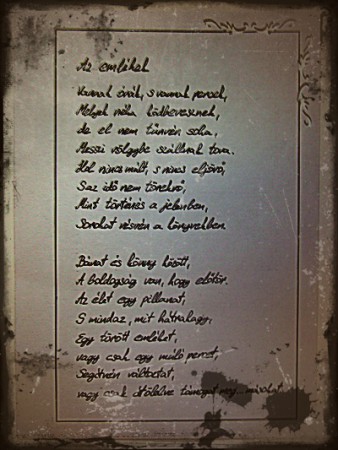 Az emlékek
Vannak órák, s vannak percek,
Melyek néha ködbevesznek,
de el nem tűnvén soha,
Messzi völgybe szállnak tova.
Hol nincs múlt, s nincs eljövő,
S az idő nem törekvő,
Mint történés a jelenben,
Sorokat vésvén a könyvekben.
Bánat és könny között,
A boldogság van, hogy eltör.
Az élet egy pillanat,
S mindaz, mit hátrahagy,
Egy törött emléket,
vagy csak egy múló percet,
Segítvén változtat,
vagy csak átölelve támogat meg... másokat.